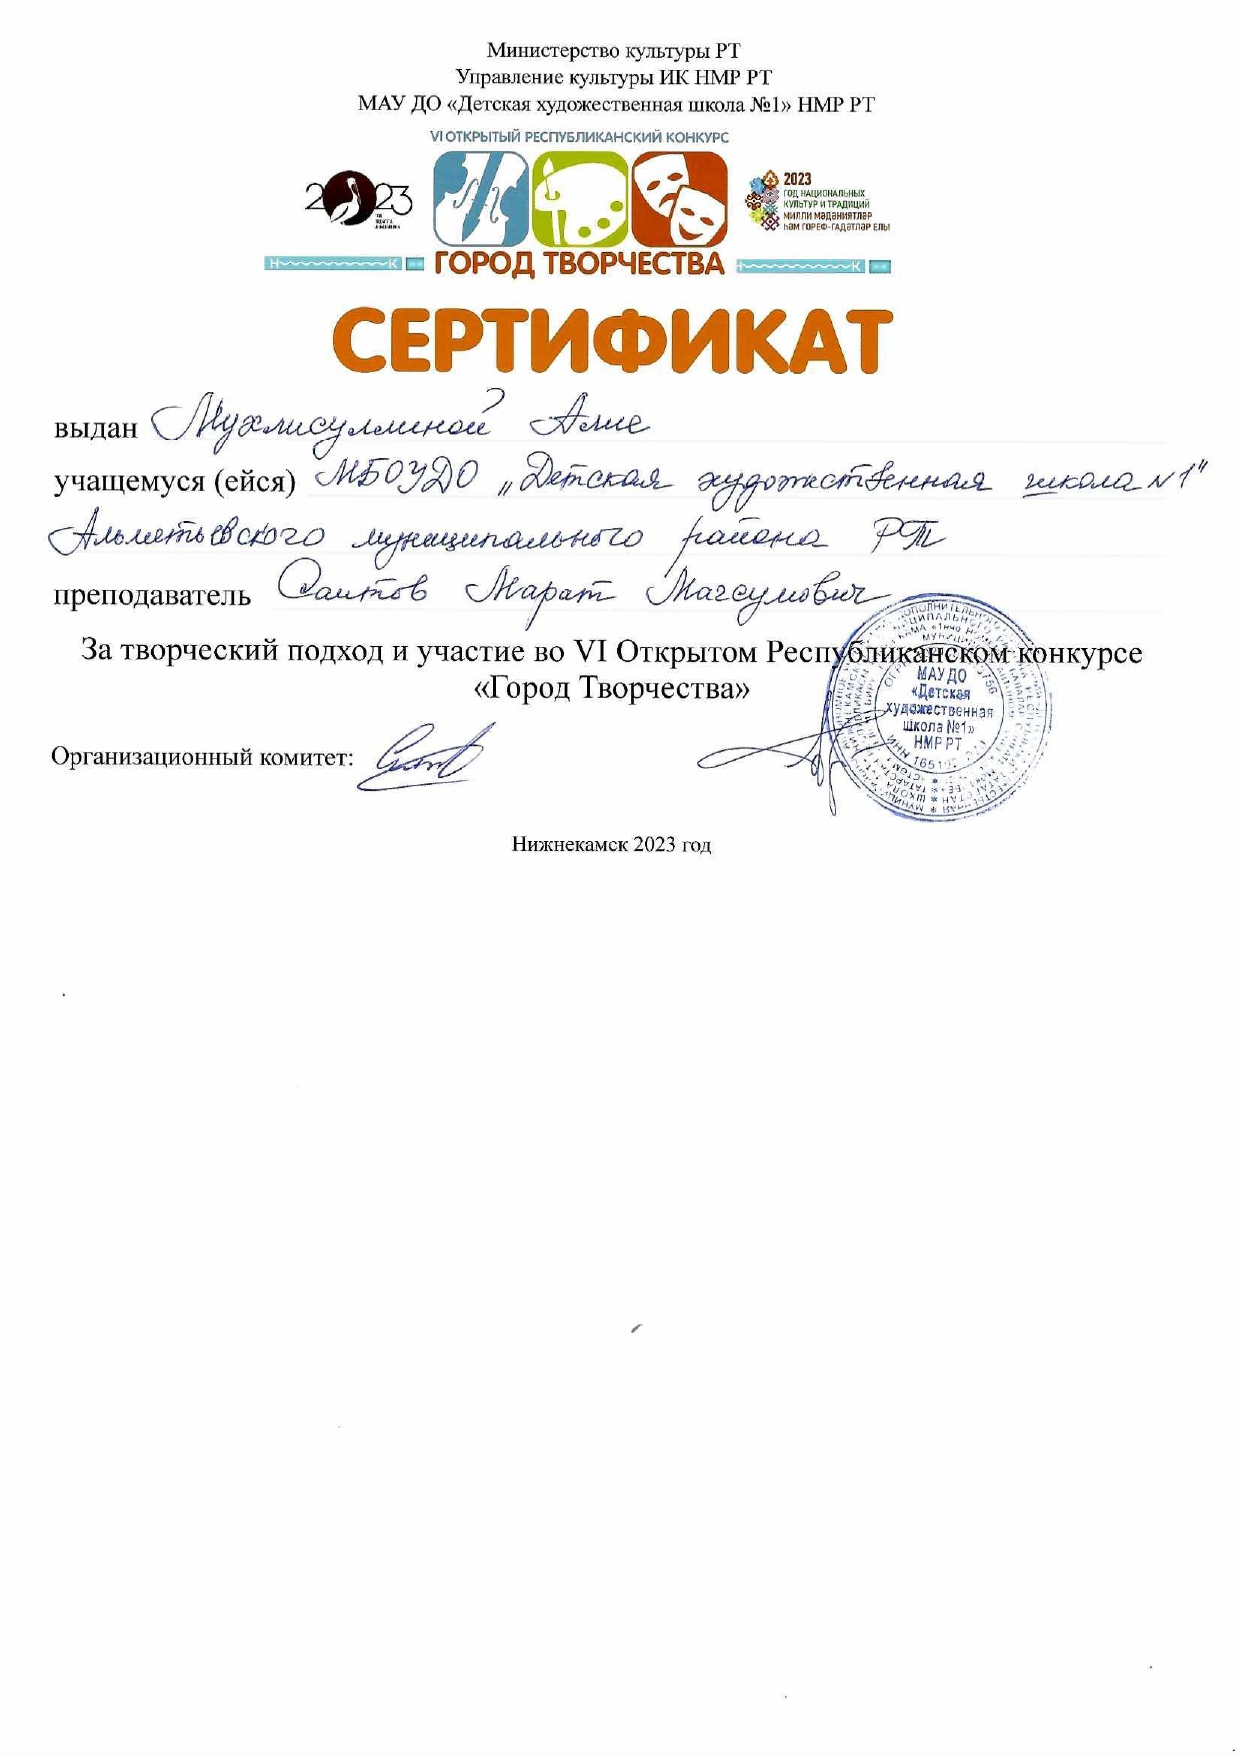 Министерство культуры РТ
Управление культуры ИК НМР РТ
МАУ ДО «Детская художественная школа №1» НМР РТ
VI ОТКРЫТЫЙ РЕСПУБЛИКАНСКИЙ КОНКУРС
2023
2023
ГОД НАЦИОНАЛЬНЫХ
КУЛЬТУР И ТРАДИЦИЙ
МИЛЛИ МӘДӘНИЯТЛӘР
ҺӘМ ГОРЕФ-ГАДӘТЛӘР ЕЛЫ
Н К ГОРОД ТВОРЧЕСТВА Н К
СЕРТИФИКАТ
выдан Мухлисуллиной Алие
учащемуся (ейся) МБОУДО „Детская художественная школа №1"
Альметьевского муниципального района РТ
преподаватель Саитов Марат Магсумович
За творческий подход и участие во VI Открытом Республиканском конкурсе
«Город Творчества»
МАУ ДО
«Детская
художественная
школа №1»
НМР РТ
Организационный комитет:
Нижнекамск 2023 год